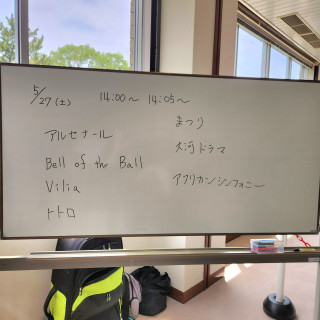 5/27(土) 14:00～ 14:05～
アルセナール
Bell of the Ball
Vilia
トトロ
まつり
大河ドラマ
アフリカンシンフォニー